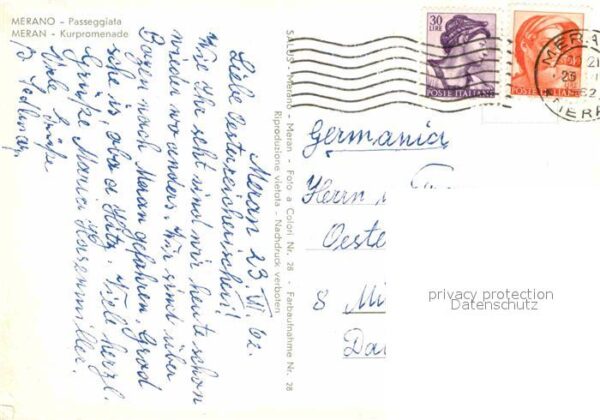 MERANO - Passeggiata
MERAN - Kurpromenade
Meran 23. VI. 62.
Liebe Oesterreicherische!
Wie Ihr seht sind wir heute schon
wieder wo anders. Wir sind über
Bozen nach Meran gefahren. Grad
schön is, aber a Hitz. Viele herzl.
Grüße Maria
Viele Grüße
SALUS - Merano - Meran - Foto a Colori Nr. 28 - Farbaufnahme Nr. 28
Riproduzione vietata - Nachdruck verboten
30
LIRE
POSTE ITALIANE
POSTE ITALIANE
MERA
21
23
62
MER
Germania
Herrn
Oeste
8 Mü
privacy protection
Datenschutz